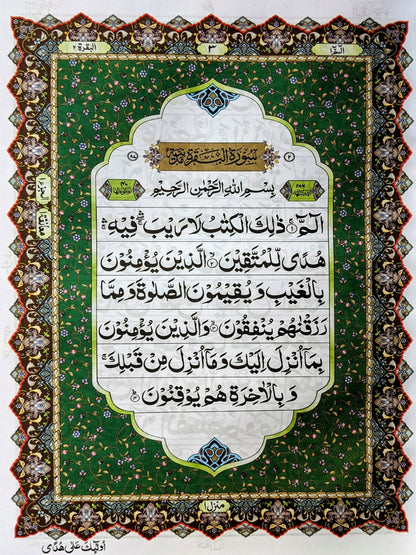 البقرة ٢
٣
الٓمّٓ ١
سُوْرَةُ الْبَقَرَةِ مَدَنِيَّةٌ
بِسْمِ اللّٰهِ الرَّحْمٰنِ الرَّحِيْمِ
الٓمّٓ ۚ﴿۱﴾ ذٰلِكَ الْكِتٰبُ لَا رَيْبَ ۛۖۚ فِيْهِ ۛۚ
هُدًى لِّلْمُتَّقِيْنَ ۙ﴿۲﴾ الَّذِيْنَ يُؤْمِنُوْنَ
بِالْغَيْبِ وَ يُقِيْمُوْنَ الصَّلٰوةَ وَ مِمَّا
رَزَقْنٰهُمْ يُنْفِقُوْنَ ۙ﴿۳﴾ وَالَّذِيْنَ يُؤْمِنُوْنَ
بِمَاۤ اُنْزِلَ اِلَيْكَ وَ مَاۤ اُنْزِلَ مِنْ قَبْلِكَ ۚ
وَ بِالْاٰخِرَةِ هُمْ يُوْقِنُوْنَ ؕ﴿۴﴾
منزل ١
اُولٰٓئِكَ عَلٰى هُدًى